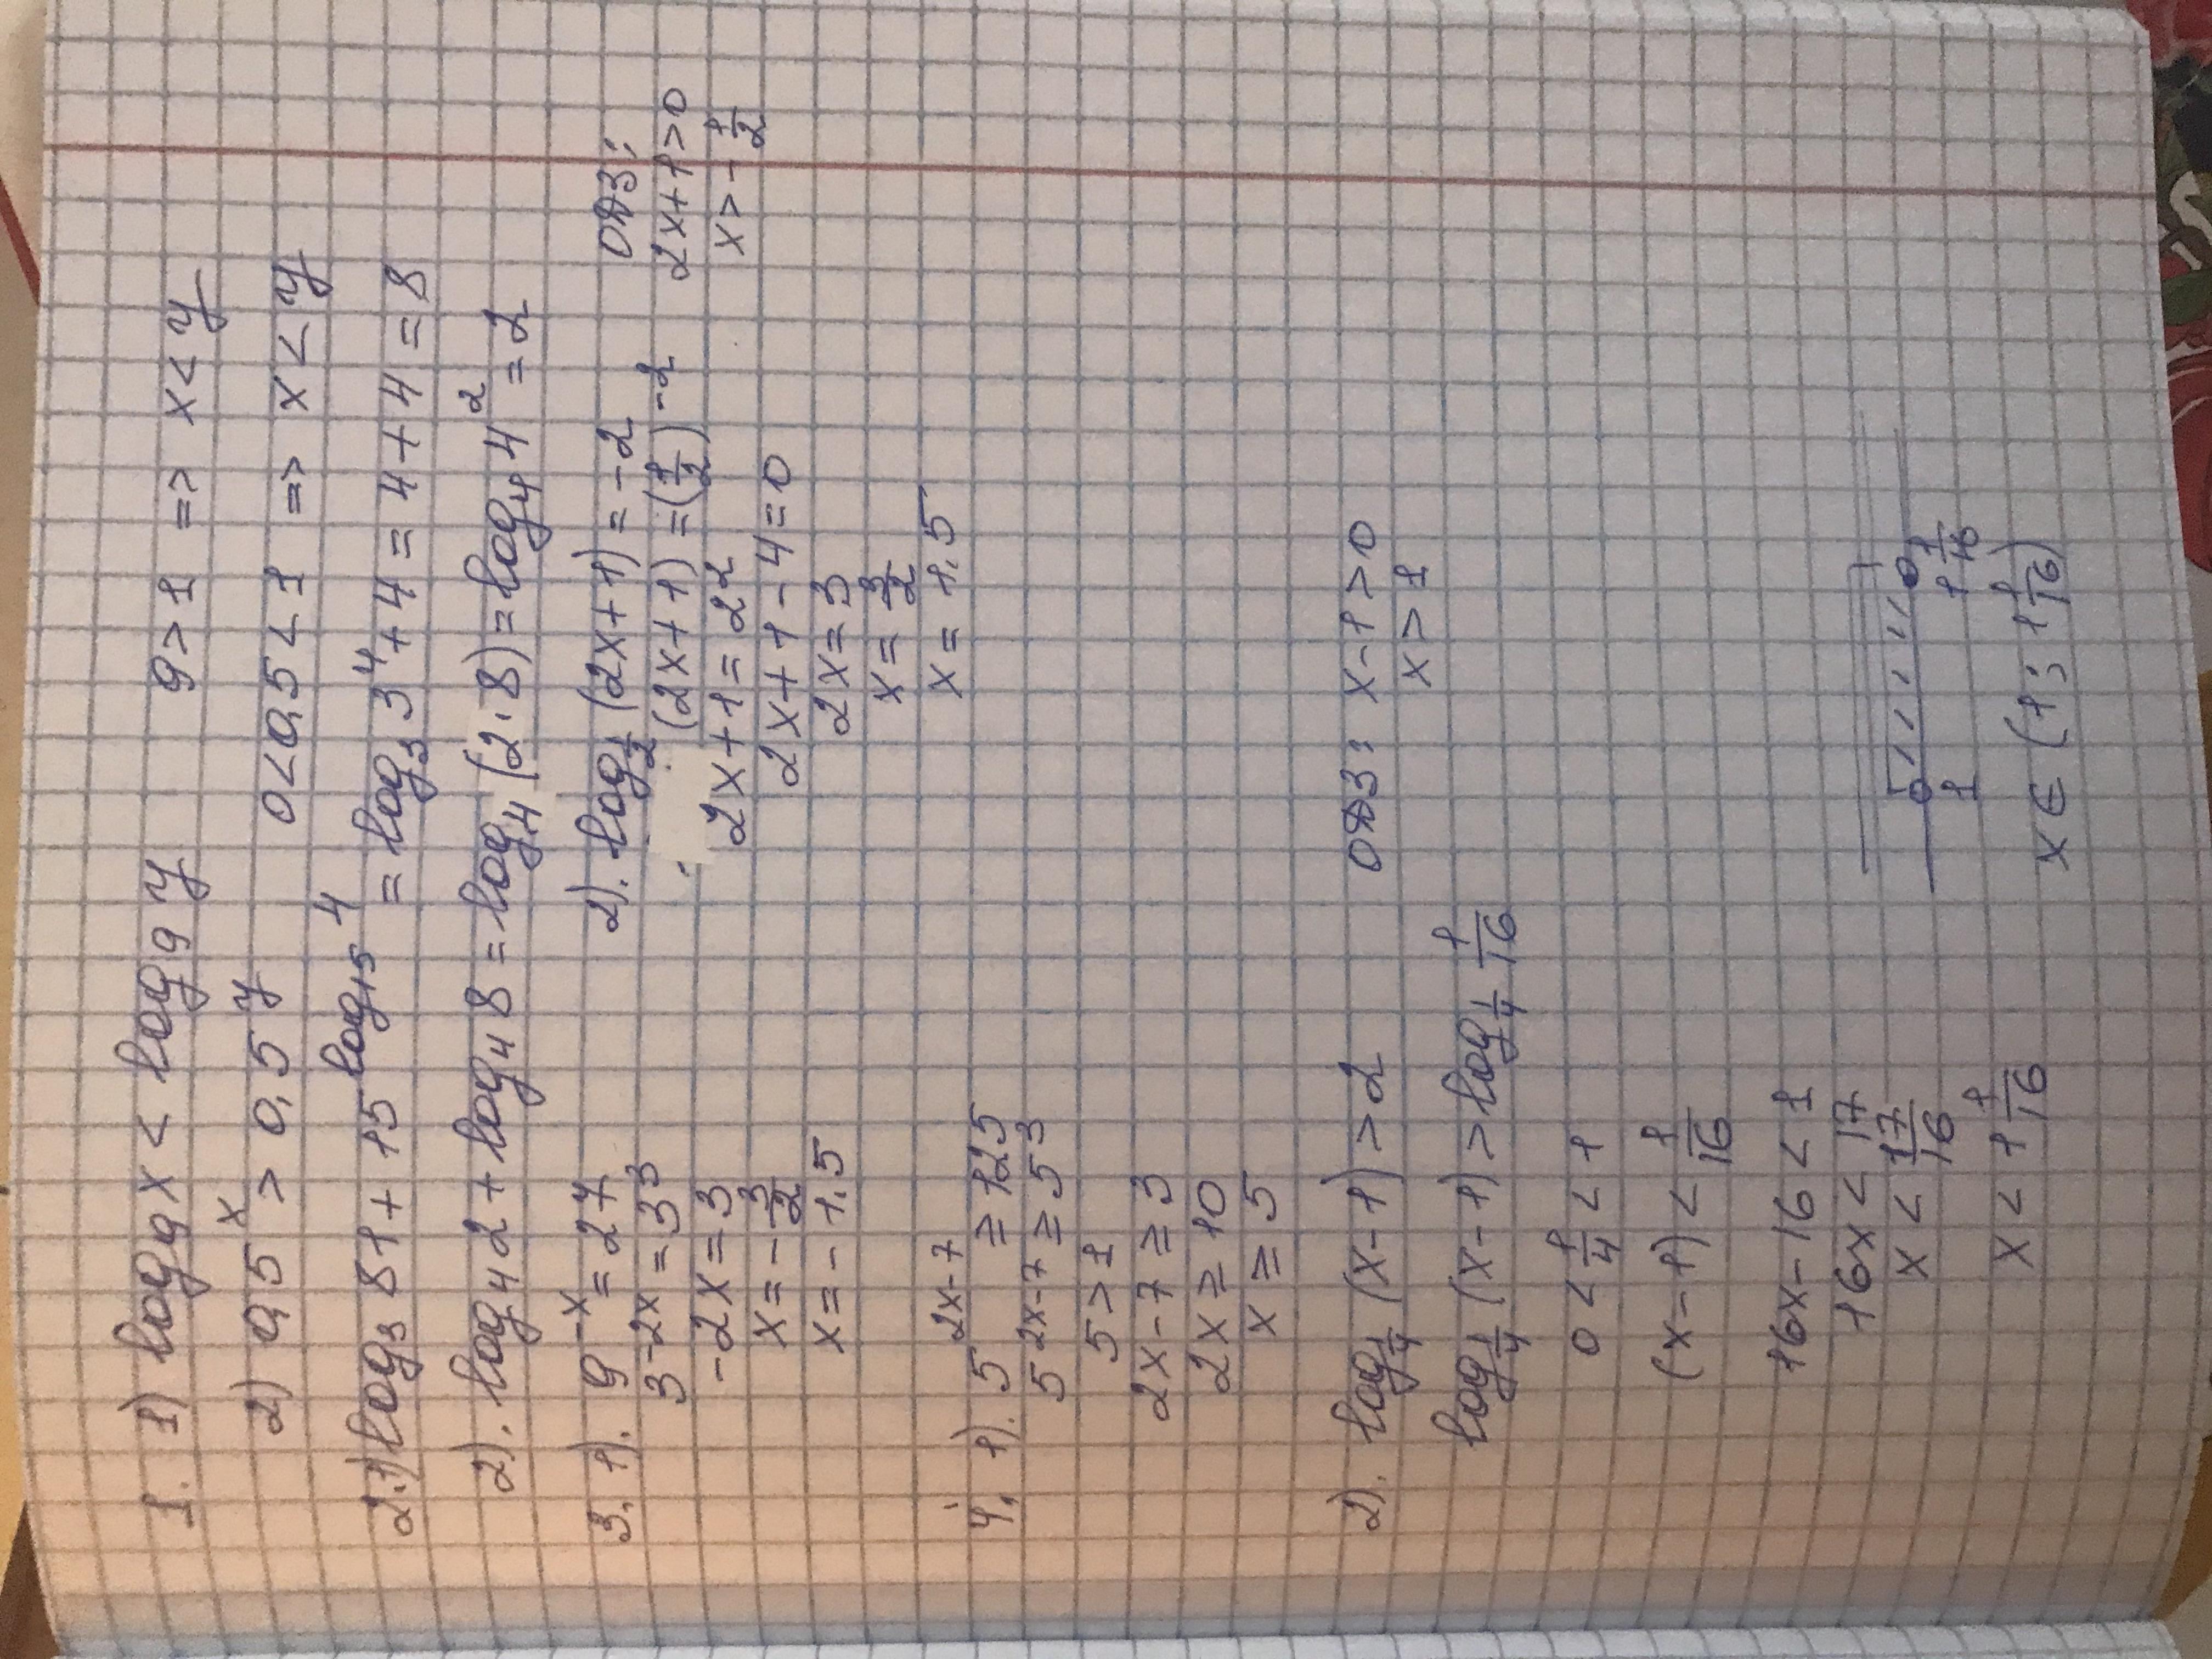 1. 1) log₉ x < log₉ y 9 > 1 => x < y
2) 0,5ˣ > 0,5ʸ 0 < 0,5 < 1 => x < y
2.1) log₃ 81 + 15^(log₁₅ 4) = log₃ 3⁴ + 4 = 4 + 4 = 8
2). log₄ 2 + log₄ 8 = log₄ (2·8) = log₄ 4² = 2
3. 1). 9^(-x) = 27
3^(-2x) = 3³
-2x = 3
x = -3/2
x = -1.5
2). log_(1/2) (2x+1) = -2
(2x+1) = (1/2)^(-2)
2x+1 = 2²
2x+1-4=0
2x=3
x = 3/2
x = 1.5
ОДЗ:
2x+1>0
x > -1/2
4. 1). 5^(2x-7) ≥ 125
5^(2x-7) ≥ 5³
5 > 1
2x-7 ≥ 3
2x ≥ 10
x ≥ 5
2). log_(1/4) (x-1) > 2 ОДЗ: x-1>0
x > 1
log_(1/4) (x-1) > log_(1/4) 1/16
0 < 1/4 < 1
(x-1) < 1/16
16x-16 < 1
16x < 17
x < 17/16
x < 1 1/16
1 1 1/16
x ∈ (1; 1 1/16)